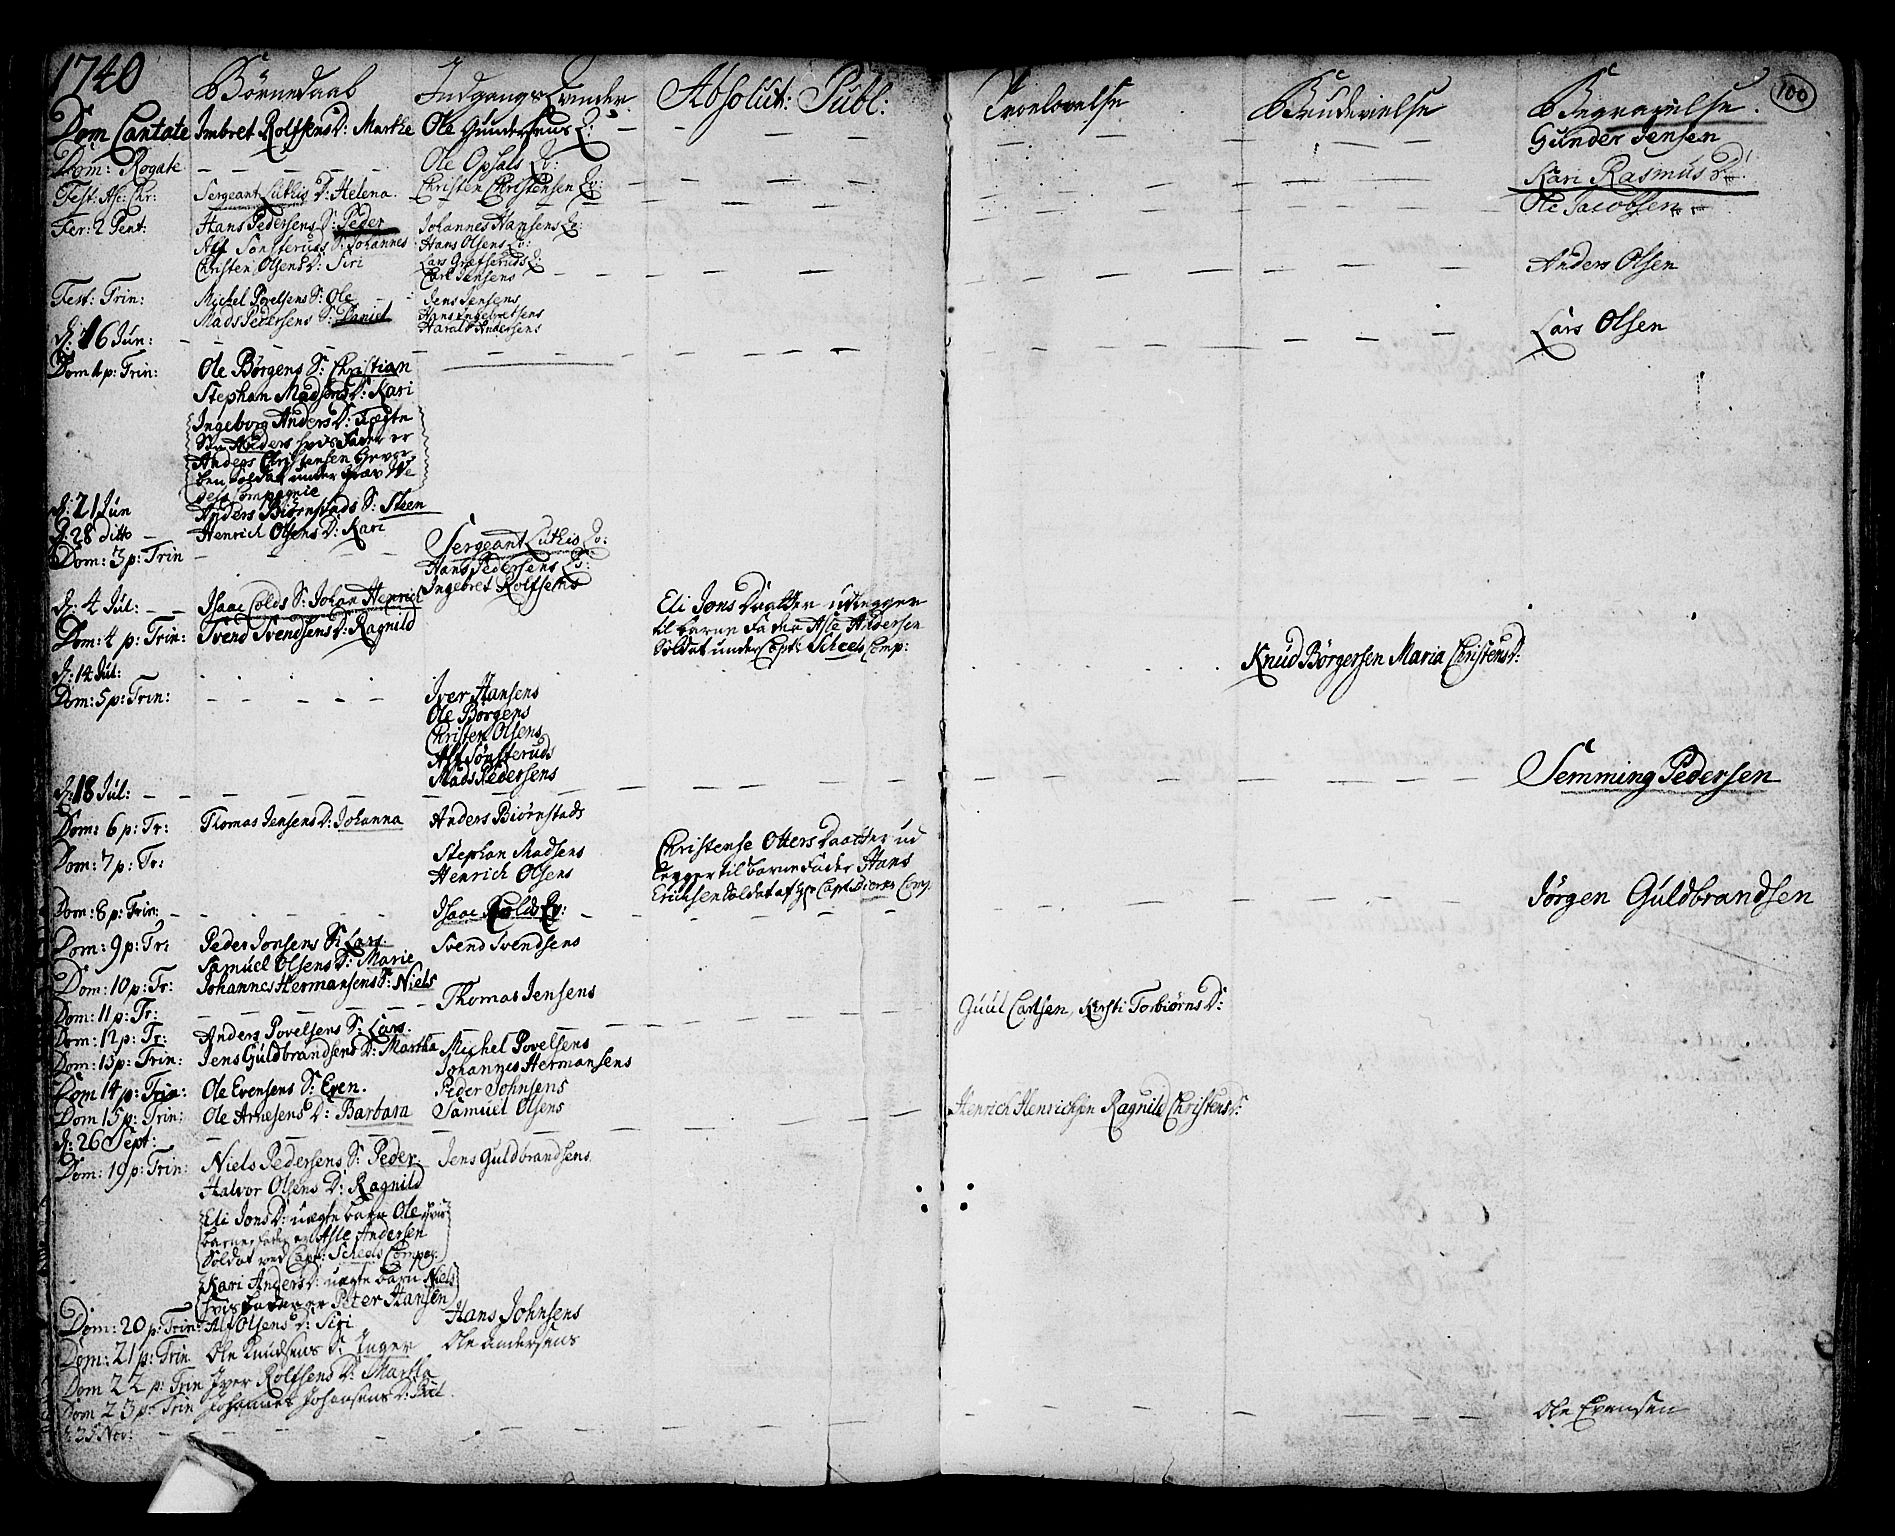 1740
Børnedaab
Indgangs Qvinder
Absolut: Publ:
Troelovelse
Brudevielse
Begravelse.
100
Dom Cantate Imbret Rolfsens D: Marthe Ole Gundersens Q: Gunder Jensen
Dom: Rogate Ole Opsals Q: Kari Rasmus D:
Fest: Asc: Chr: Sergeant Luthis D: Helena. Christen Christensen Q: Ole Jacobsen
Fer: 2 Pent: Hans Pedersens S: Peder Johannes Hansens Q:
Alf Sønsteruds S: Johannes Hans Olsens Q:
Christen Olsens D: Siri Lars Græfseruds Q: Anders Olsen
Carl Jensens
Fest: Trin: Michel Povelsens S: Ole Jens Jensens
Mads Pedersens S: Daniel Hans Ingebretsens
Harald Andersens
d: 16 Jun: Lars Olsen
Dom 1 p: Trin: Ole Børgens S: Christian
Stephan Madsens D: Kari
Ingeborg Anders D: Uægte
Søn Anders hvis Fader er
Anders Christensen Gevor-
ben Soldat under Grev We
dels Compagnie
d: 21 Jun Anders Biørnstads S: Steen
d: 28 ditto Henrich Olsens D: Kari
Dom: 3 p: Trin Sergeant Luthis Q:
Hans Pedersens Q:
Ingebret Rolfsens
d: 4 Jul: Isaac Colds S: Johan Henrich
Dom: 4 p: Trin: Svend Svendsens D: Ragnild
Eli Jons Daatter udlegger
til barne Fader Asle Andersen
Soldat under Capt: Scheels Comp:
d: 14 Jul: Knud Børgersen Maria Christens D:
Dom: 5 p: Trin: Iver Hansens
Ole Børgens
Christen Olsens
Alf Sønsteruds
Mads Pedersens
d: 18 Jul: Semming Pedersen
Dom: 6 p: Tr: Thomas Jensens D: Johanna Anders Biørnstads
Dom: 7 p: Tr: Stephan Madsens
Henrich Olsens
Christense Otters Daatter ud
legger til barne Fader Hans
Erichsen Soldat af Hr Capt: Comp.
Dom: 8 p: Trin: Isaac Colds Q: Jørgen Guldbrandsen
Dom: 9 p: Tri Peder Jonsens S: Lars. Svend Svendsens
Samuel Olsens D: Marie
Dom: 10 p: Tr: Johannes Hermansens S: Niels Thomas Jensens
Dom: 11 p: Tr: Guul Carlsen, Kirsti Torbiørns D:
Dom: 12 p: Tr: Anders Povelsens S: Lars.
Dom: 13 p: Trin: Jens Guldbrandsens D: Martha Michel Povelsens
Johannes Hermansens
Dom 14 p: Trin Ole Evensens S: Even. Peder Johnsens
Dom 15 p: Trin: Ole Arnesens D: Barbara Samuel Olsens Henrich Henrichsen Ragnild Christens D:
d: 26 Sept:
Dom: 19 p: Trin: Niels Pedersens S: Peder. Jens Guldbrandsens.
Halvor Olsens D: Ragnild
Eli Jons D: uægte barn Ole hvis
barne fader er Asle Andersen
Soldat ved Capt: Scheels Compag:
Kari Anders D: uægte barn Niels
hvis fader er Peter Hansen
Dom: 20 p: Trin: Alf Olsens D: Siri Hans Johnsens
Dom: 21 p: Trin Ole Knudsens D: Inger Ole Andersens
Dom 22 p: Trin Iver Rolfsens D: Martha
Dom 23 p: Trin Johannes Johansens D:
Nov: Ole Evensen